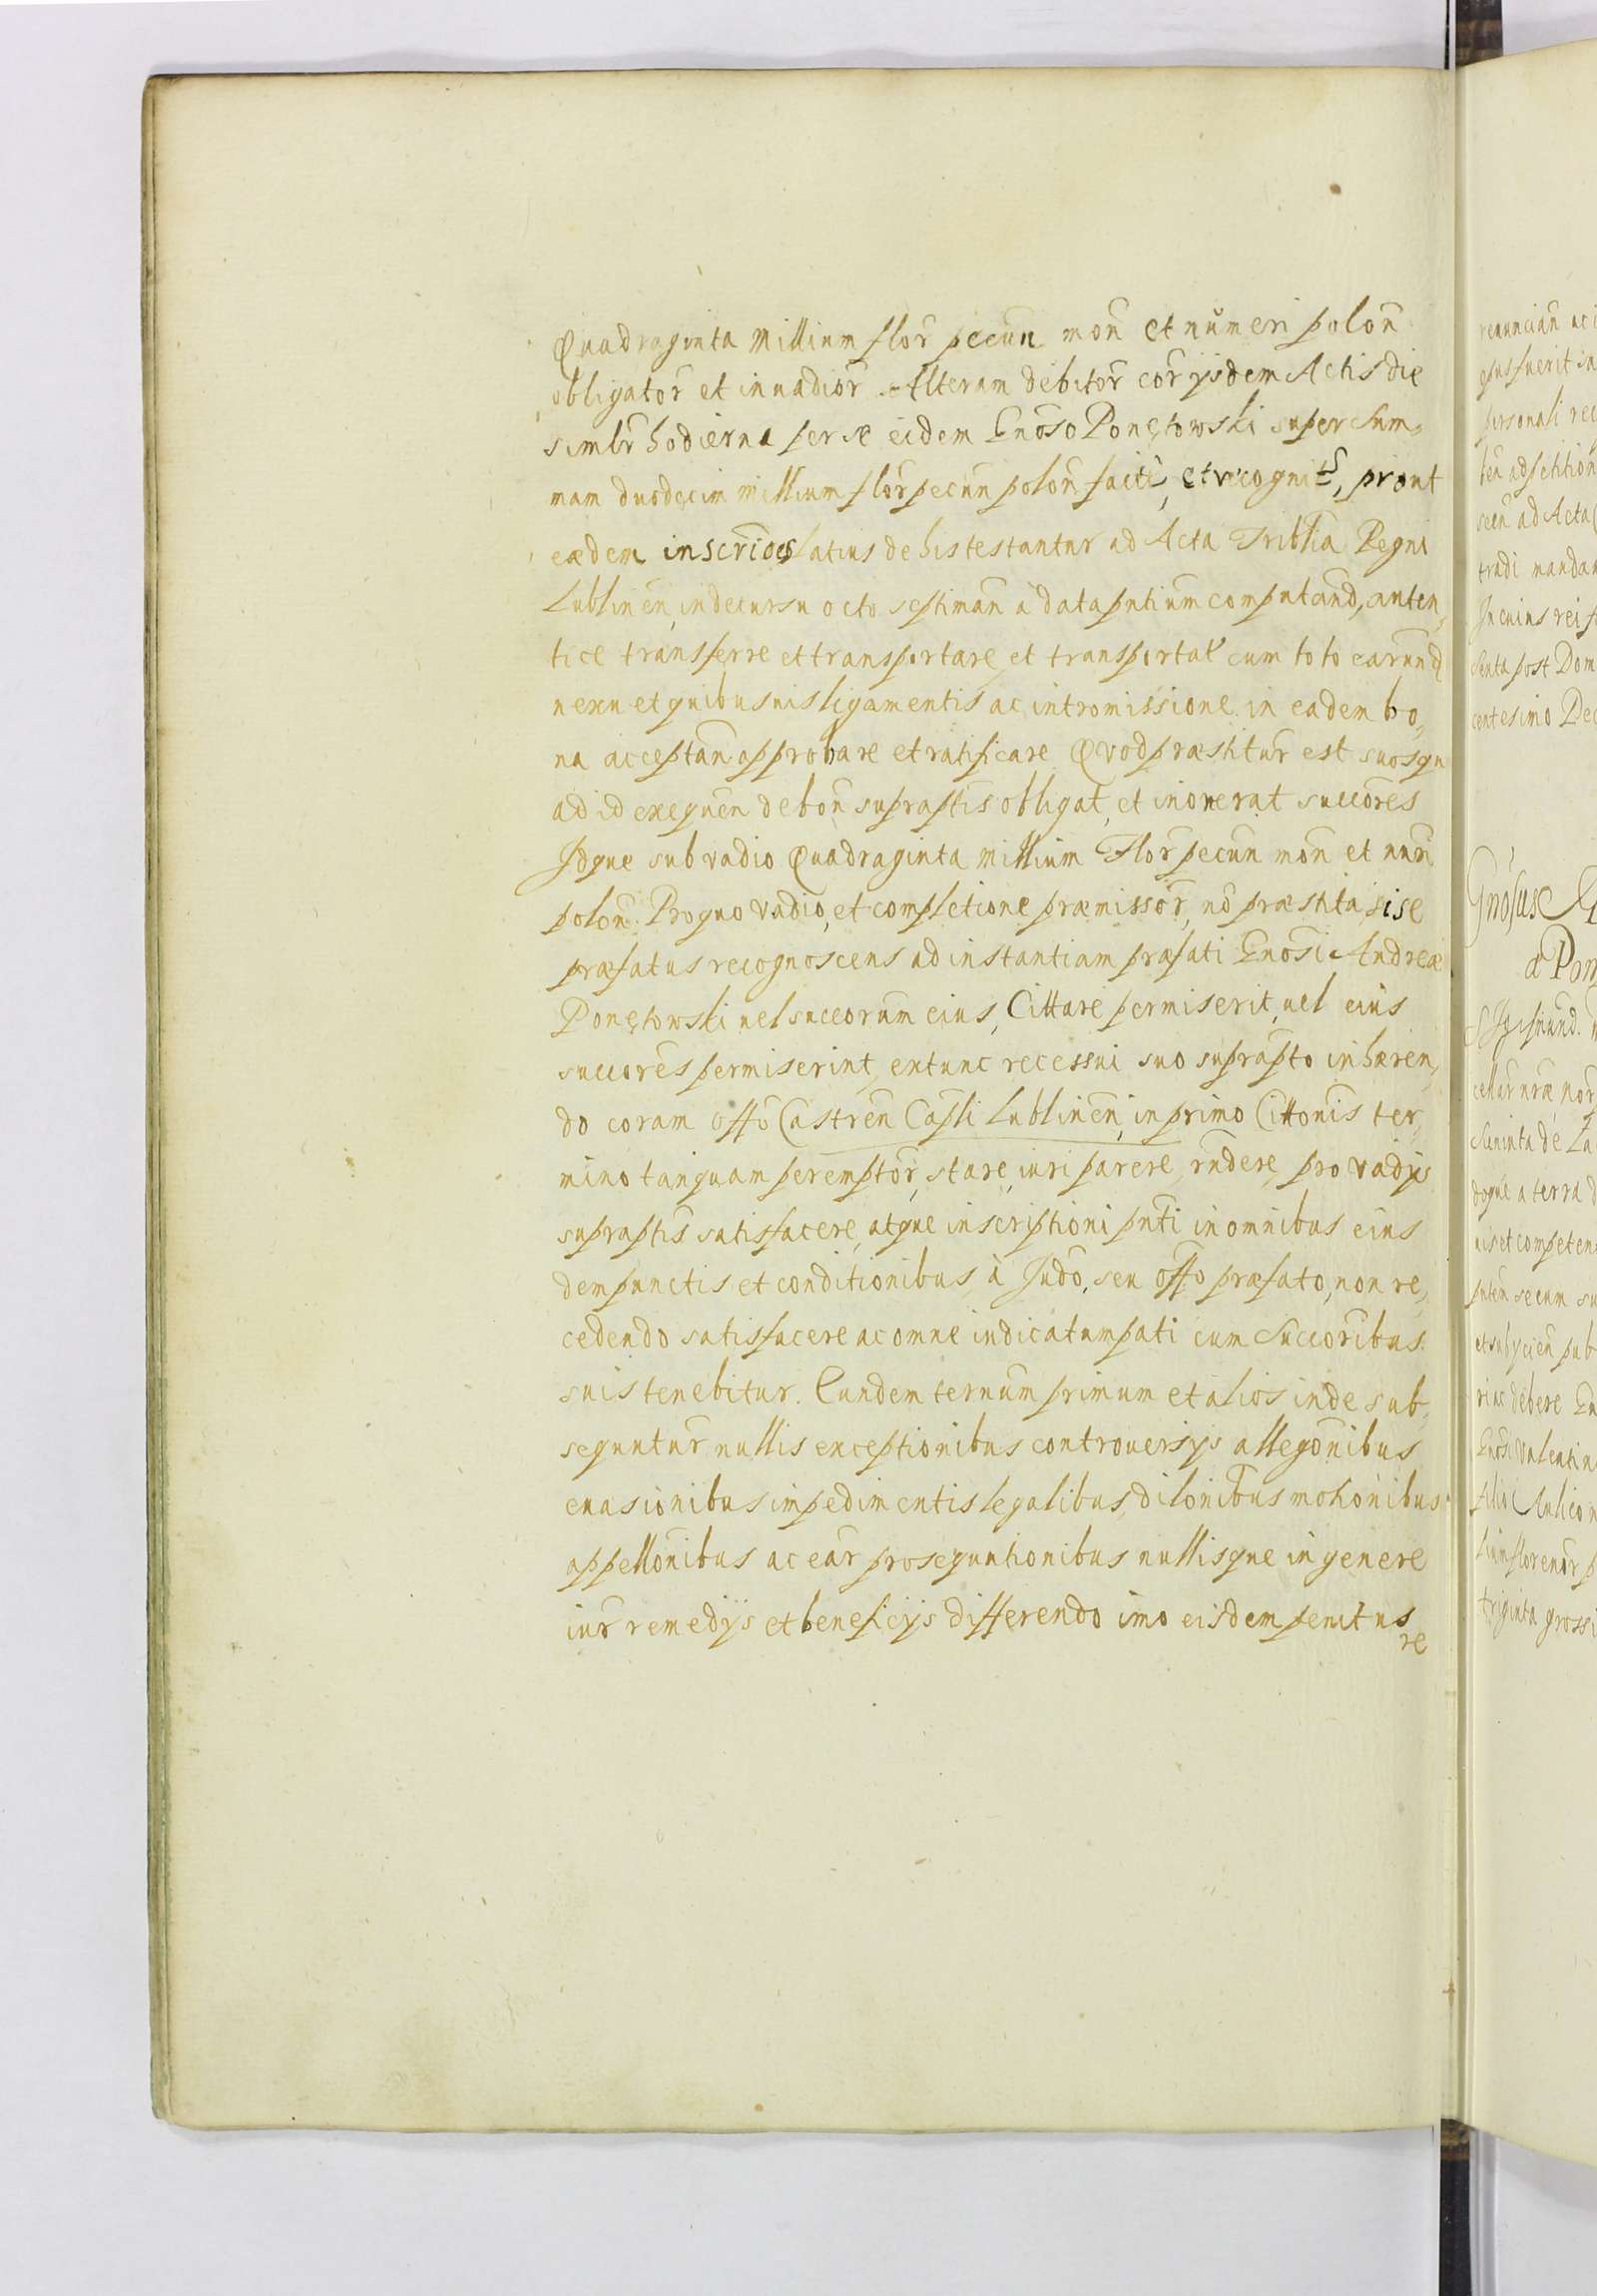 Quadraginta Millium flor̃ pecun̄ mon̄ et numeri polon̄
obligator̃ et inuadior̃. Alteram debitor̃ cor̃ ijsdem Actis die
similr̃ hodierna per se eidem Gnoso Ponętowski super Sum„
mam duodecim millium flor̃ pecun̄ polon̄ facit̃, et recognit̃, prout
eædem inscrīoes latius de his testantur ad Acta Triblia Regni
Lublinen̄, in decursu octo septiman̄ à data pn̄tium computand, auten„
tice transferre et transportare et transportat̃ cum toto earund̄
nexu et quibusuis ligamentis ac intromissione in eadem bo„
na acceptan̄ approbare et ratificare Qvod præstitur̃ est suosqu
ad id exequen̄ de bon̄ supraptis obligat, et inonerat succōres
Idque sub vadio Quadraginta Millium Flor̃ pecun̄ mon̄ et nūri
polon̄. Pro quo vadio, et completione præmissor̃, nō præstita si se
præfatus recognoscens ad instantiam præfati Gnosi Andreæ
Ponętowski uel succorum eius, Cittare permiserit, uel eius
succōres permiserint, extunc recessui suo suprapto inhæren„
do coram Offō Castren̄ Capli Lublinen̄, in primo Cittonis ter„
mino tanquam peremptor̃, stare, iuri parere, rn̄dere, pro vadijs
supraptis satisfacere, atque inscriptioni pn̄ti in omnibus eius
dem punctis et conditionibus, à Judō, seu offō præfato, non re„
cedendo satisfacere ac omne iudicatum pati cum Succoribus
suis tenebitur. Eundem ternum primum et alios inde sub„
sequntur̃ nullis exceptionibus controuersijs allegōnibus
euasionibus impedimentis legalibus, dilonibus motionibus
appellōnibus ac ear̃ prosequutionibus nullisque in genere
iur̃ remedijs et beneficijs differendo imo eisdem penitus
re